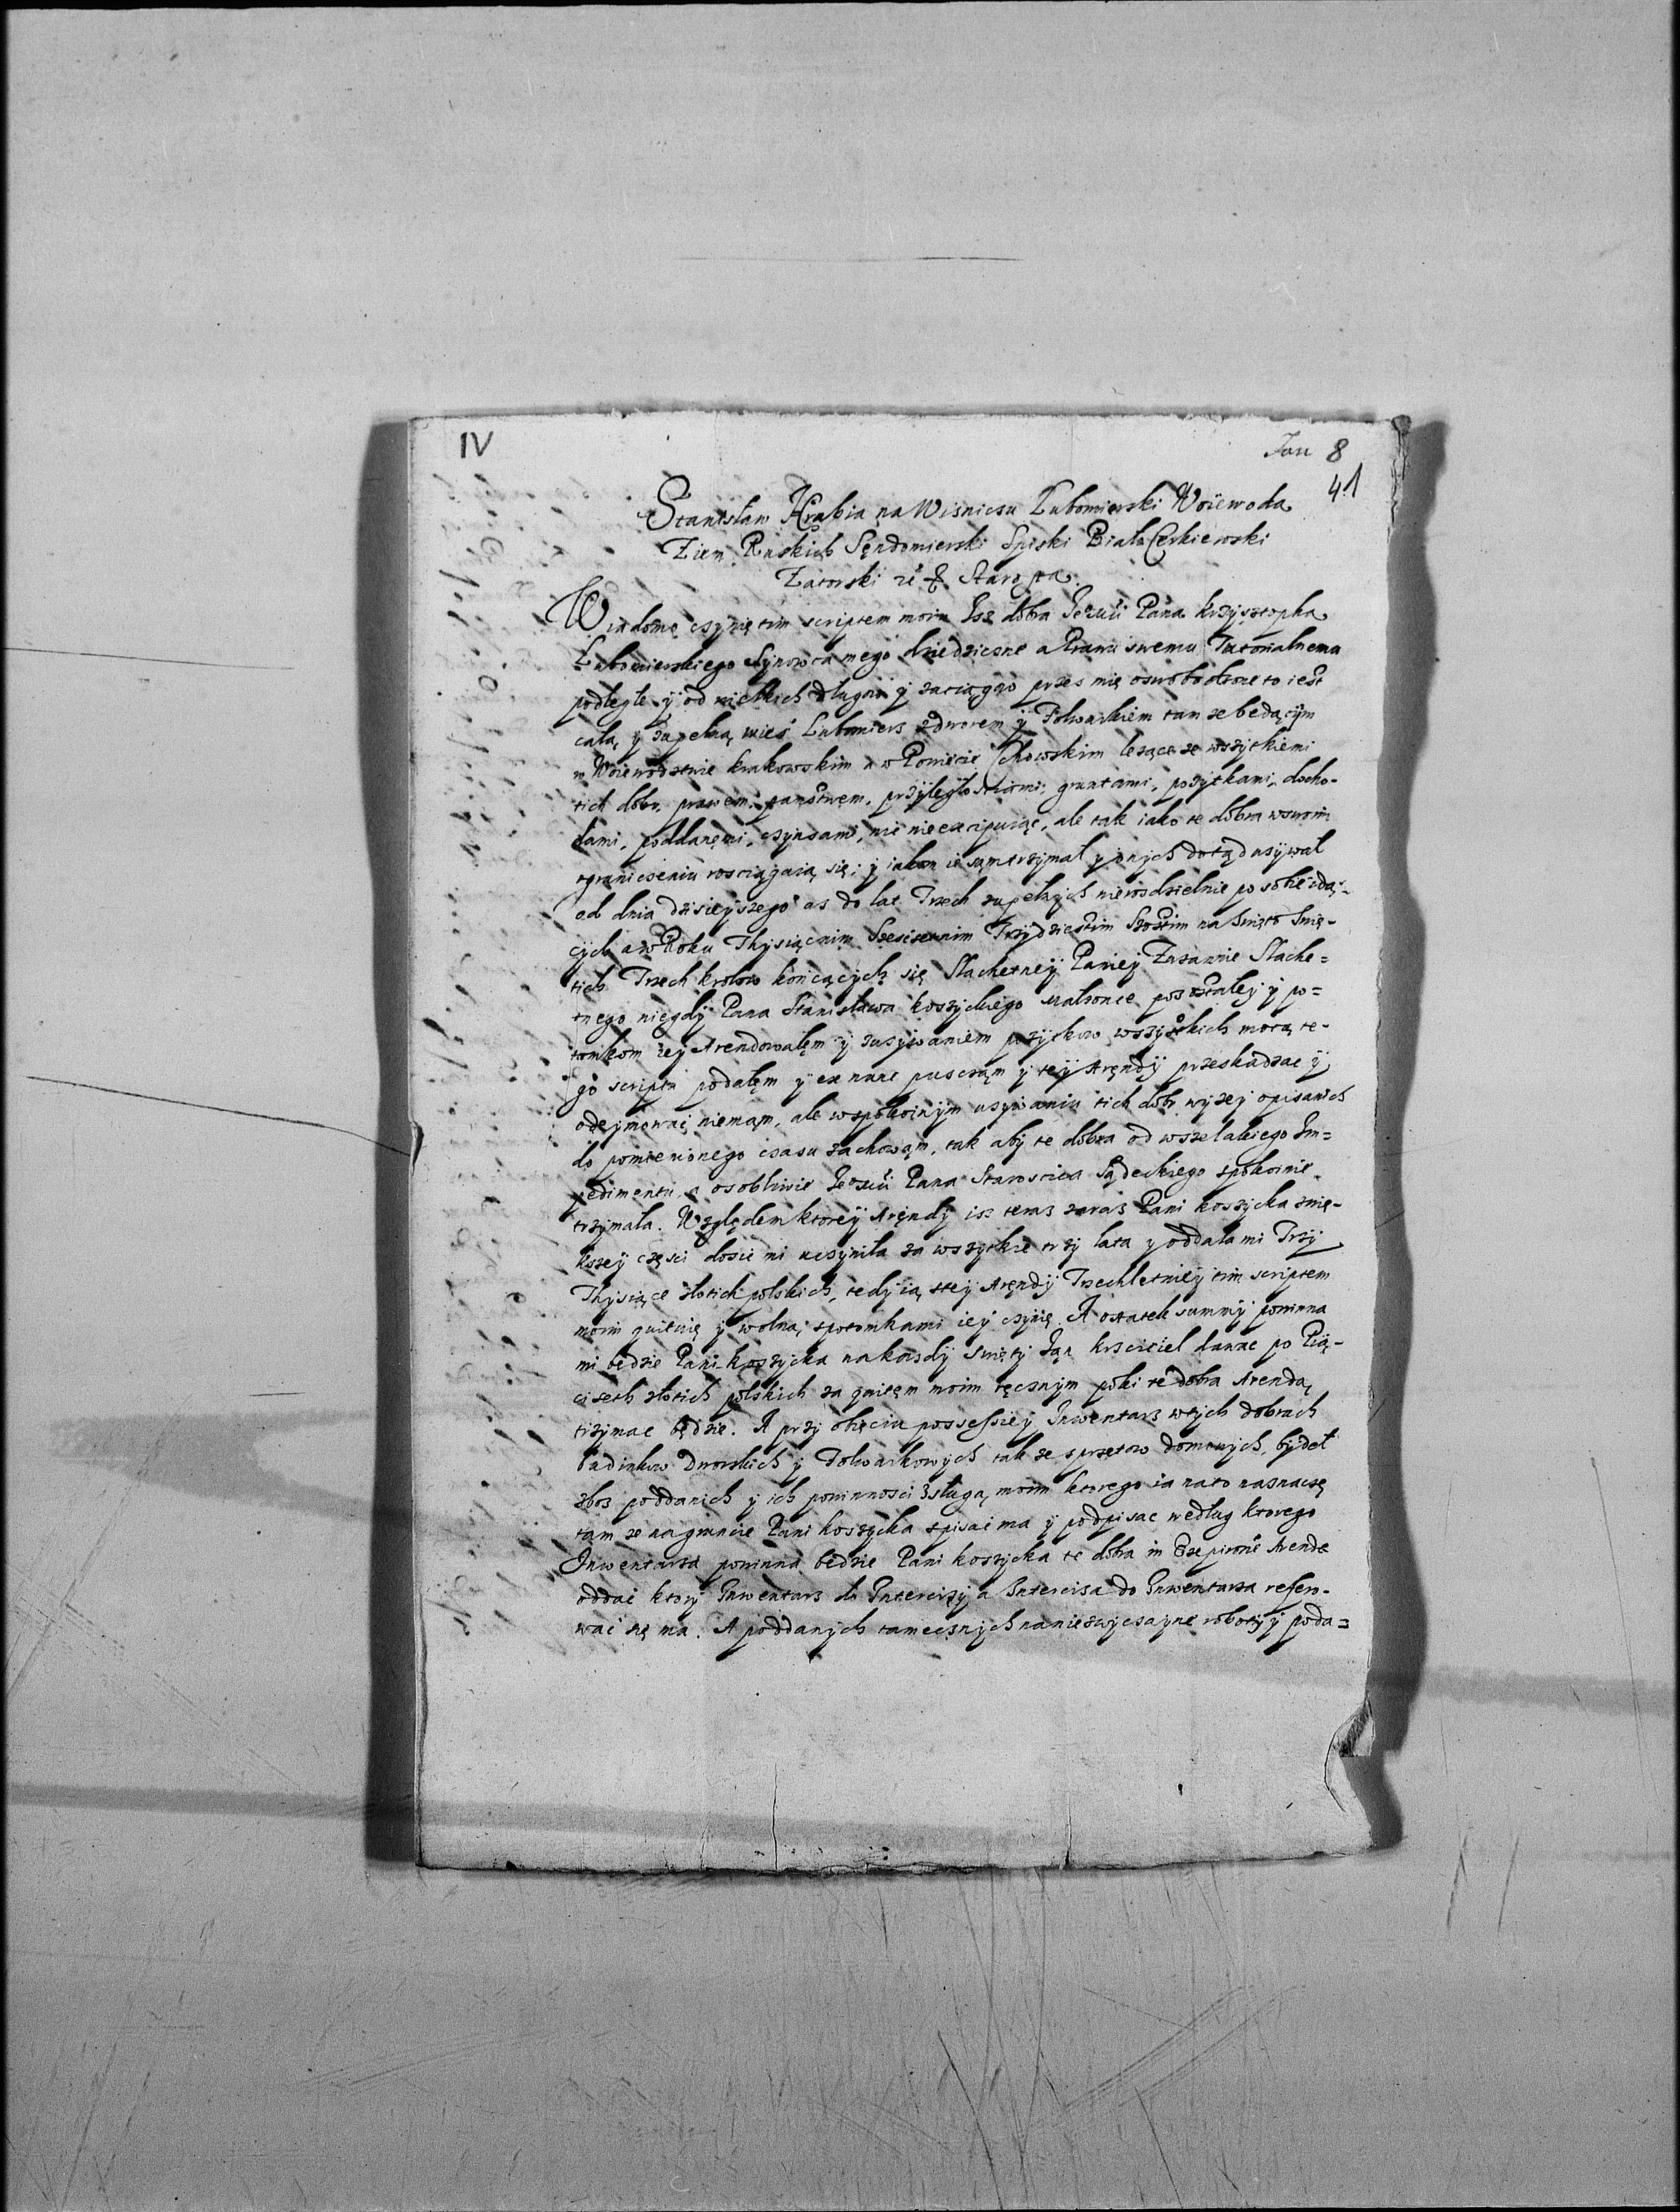 IV
Jan 8
41
Stanisław Hrabia na Wisniczu Lubomierski Woiewoda
Ziem Ruskich Sęndomierski Spiski Białocerkiewski
Zatorski Starosta.
Wiadomę czÿnię tim scriptem moim Isz dobra Jeo Mci Pana krzysztopha
Lubomierskiego Sÿnowca mego dziedziczne a Prawu swemu Tutorialnemu
podległe ÿ od wielkich długow ÿ zaciągow przes mię oswobodzone to iest
całą ÿ zupełną wieś Lubomierz zdworem ÿ Folwarkiem tam ze będącÿm
w Woiewodztwie krakowskim a w Powiecie Cchowskim lezące ze wszÿtkiemi
tich dobr, prawem, państwem, przÿległosciami, gruntami, pozÿtkami, docho-
dami, poddanęmi, czÿnszami, nic nieexcipuiąc, ale tak iako te dobra wswoim
ograniczeniu rosciągaią się, ÿ iakom ie sąm trzÿmał ÿ onÿch dotąd uzÿwał
od dnia dzisieÿszego as do lat Trzech zupełnÿch nierosdzielnie po sobie idą-
cÿch a w Roku Thÿsiącnim Szescsetnim Trzÿdziestim Szostim na swięto Swię-
tich Trzech krolow kończącÿch się Slachetneÿ Panieÿ Zuzannie Slache-
tnego niegdÿ Pana Stanisława koszÿckiego Małzonce pozostałeÿ ÿ po-
tomkom ieÿ Arendowałęm ÿ zuzÿwaniem pozÿtkow wszÿstkich mocą te-
go scriptu podałęm ÿ ex nunc puscząm ÿ teÿ Aręndÿ przeskadzac ÿ
odeÿmowaċ niemąm, ale wspokoinÿm uzÿwaniu tich dobr wÿzeÿ opisanich
do pomienionego czasu zachowąm, tak abÿ te dobra od wszelakiego Im-
pedimentu a osobliwie Jeo Mci Pana Starosticza Sądeckiego spokoinie
trzÿmała. Względem ktoreÿ Aręndÿ isz teraz zaraz Pani koszÿcka zwię-
kszeÿ części dosic mi uczÿniła za wszÿtkie trzÿ lata ÿ oddała mi Trzÿ
Thÿsiące złotich polskich, tedÿ ią steÿ Aręndÿ Trzechletnieÿ tim scriptem
moim quituię ÿ wolną spotomkami ieÿ czÿnię. A ostatek summÿ powinna
mi będzie Pani koszÿcka na kazdÿ Swiętÿ Ian krzciciel dawac po Pią-
ciseth złotich polskich za quitęm moim ręcznÿm poki te dobra Arendą
trzÿmac będzie. A przÿ obięciu possessieÿ Inwentarz wtÿch dobrach
budinkow Dworskich ÿ Folwarkowÿch tak ze sprzętow domowÿch, bÿdeł
zboz poddanich ÿ ich powinnosci zsługą moim ktorego ia na to naznaczę
tam ze na gruncie Pani koszÿcka spisać ma ÿ podpisac według ktorego
Inwentarza powinna będzie Pani koszÿcka te dobra in Arende
oddać ktorÿ Inwentarz do Intercizÿ a Interciza do Inwentarza refero-
wać się ma. A poddanÿch tamecznÿch na niezwÿczaÿne robotÿ ÿ poda-